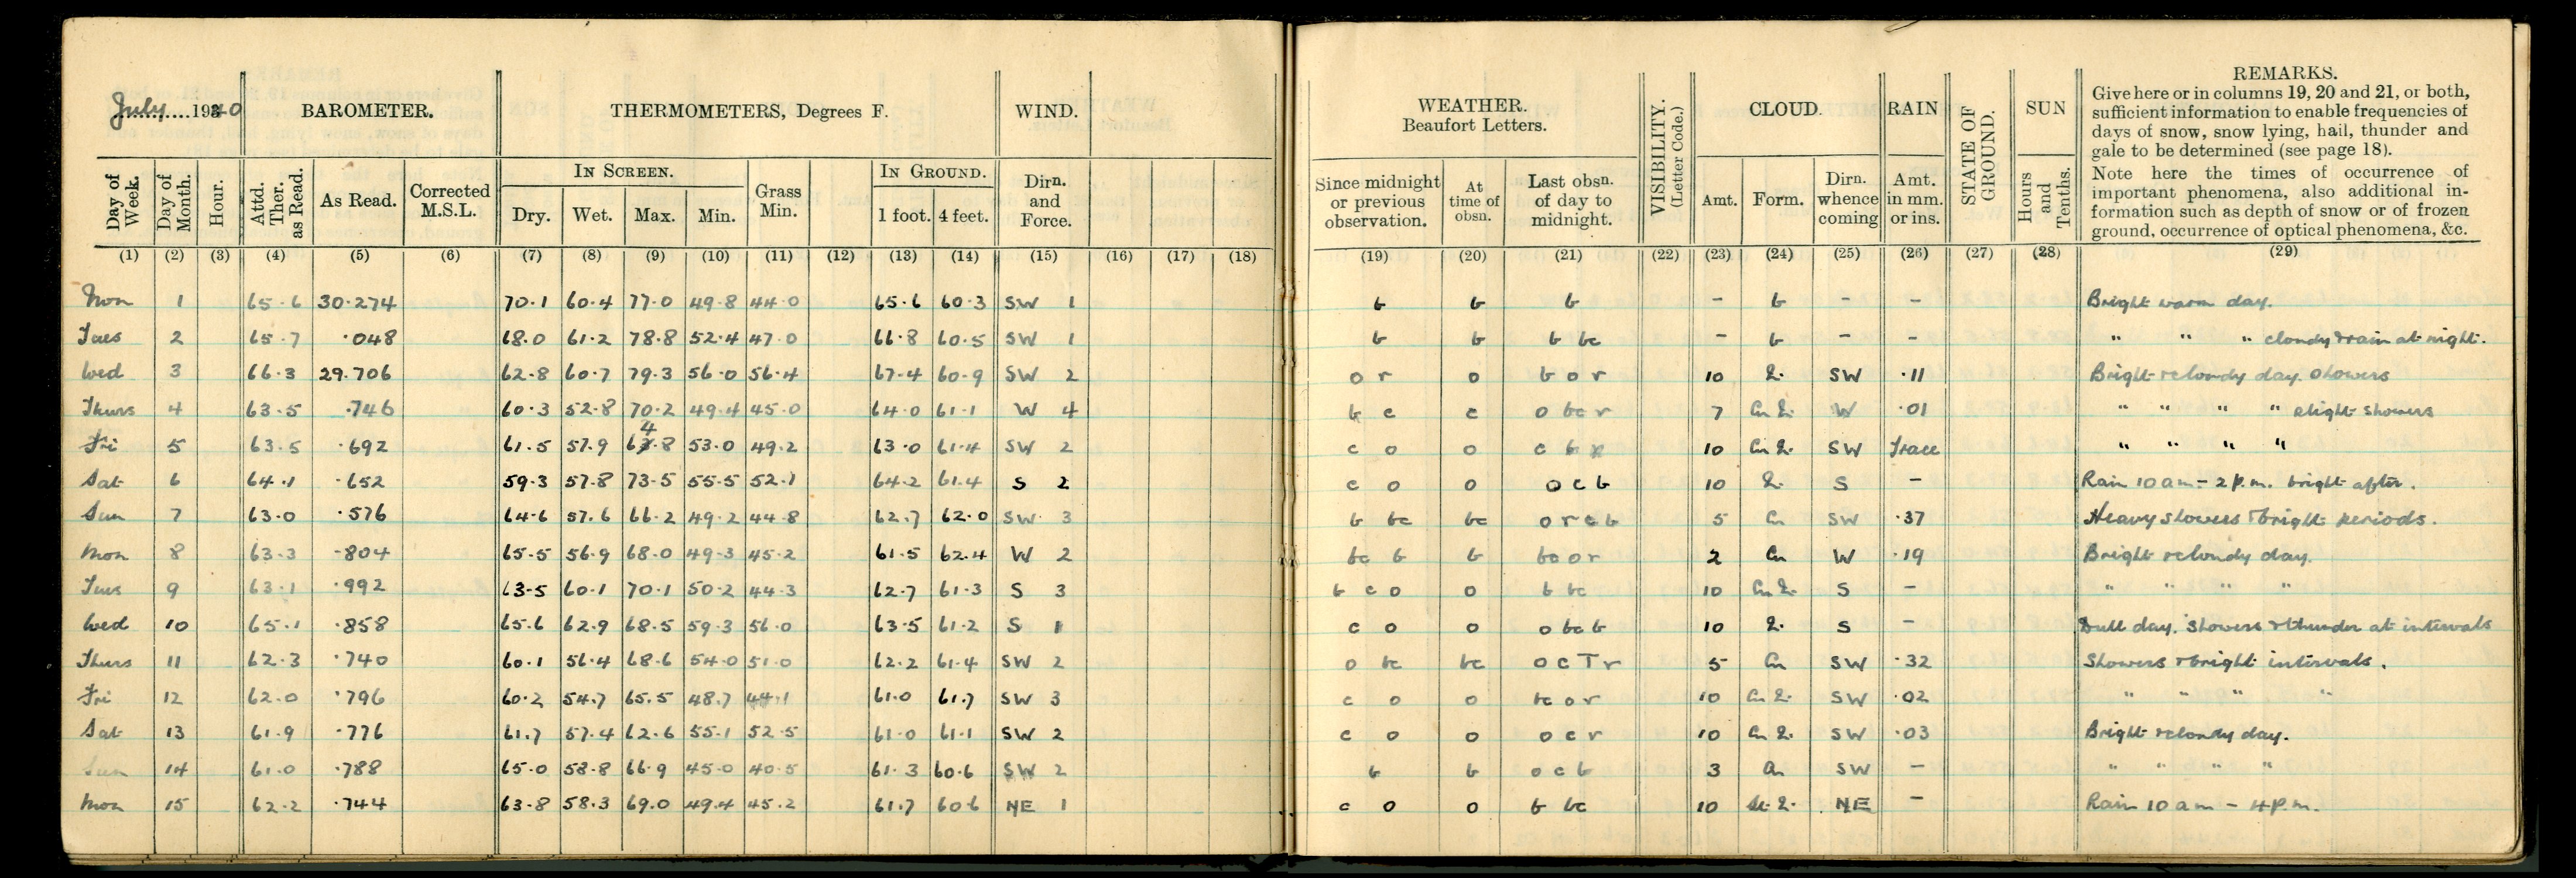 July 1940 BAROMETER. THERMOMETERS, Degrees F. WIND. WEATHER. Beaufort Letters. VISIBILITY. (Letter Code.) CLOUD. RAIN STATE OF GROUND. SUN REMARKS.
Give here or in columns 19, 20 and 21, or both,
sufficient information to enable frequencies of
days of snow, snow lying, hail, thunder and
gale to be determined (see page 18).
Note here the times of occurrence of
important phenomena, also additional in-
formation such as depth of snow or of frozen
ground, occurrence of optical phenomena, &c.
IN SCREEN. IN GROUND.
Day of Week. Day of Month. Hour. Attd. Ther. as Read. As Read. Corrected M.S.L. Dry. Wet. Max. Min. Grass Min. 1 foot. 4 feet. Dirn. and Force. Since midnight or previous observation. At time of obsn. Last obsn. of day to midnight. Amt. Form. Dirn. whence coming Amt. in mm. or ins. Hours and Tenths.
(1) (2) (3) (4) (5) (6) (7) (8) (9) (10) (11) (12) (13) (14) (15) (16) (17) (18) (19) (20) (21) (22) (23) (24) (25) (26) (27) (28) (29)
Mon 1 65.6 30.274 70.1 60.4 77.0 49.8 44.0 65.6 60.3 SW 1 b b b - b - - Bright warm day.
Tues 2 65.7 .048 68.0 61.2 78.8 52.4 47.0 66.8 60.5 SW 1 b b b bc - b - - " " " cloudy & rain at night.
Wed 3 66.3 29.706 62.8 60.7 79.3 56.0 56.4 67.4 60.9 SW 2 o r o b o r 10 SW .11 Bright & cloudy day. Showers
Thurs 4 63.5 .746 60.3 52.8 70.2 49.4 45.0 64.0 61.1 W 4 b c c o bc r 7 Cu W .01 " " " " slight showers
Fri 5 63.5 .692 61.5 57.9 64.8 53.0 49.2 63.0 61.4 SW 2 c o o c b 10 Cu SW Trace " " " "
Sat 6 64.1 .652 59.3 57.8 73.5 55.5 52.1 64.2 61.4 S 2 c o o o c b 10 S - Rain 10 am - 2 p.m. bright after.
Sun 7 63.0 .576 64.6 57.6 66.2 49.2 44.8 62.7 62.0 SW 3 b bc bc o r c b 5 Cu SW .37 Heavy showers & bright periods.
Mon 8 63.3 .804 65.5 56.9 68.0 49.3 45.2 61.5 62.4 W 2 bc b b bc o r 2 Cu W .19 Bright & cloudy day.
Tues 9 63.1 .992 63.5 60.1 70.1 50.2 44.3 62.7 61.3 S 3 b c o o b bc 10 Cu S - " " " "
Wed 10 65.1 .858 65.6 62.9 68.5 59.3 56.0 63.5 61.2 S 1 c o o o bc b 10 S - Dull day. Showers & thunder at intervals
Thurs 11 62.3 .740 60.1 56.4 68.6 54.0 51.0 62.2 61.4 SW 2 o bc bc o c T r 5 Cu SW .32 Showers & bright intervals.
Fri 12 62.0 .796 60.2 54.7 65.5 48.7 44.1 61.0 61.7 SW 3 c o o bc o r 10 Cu SW .02 " " " "
Sat 13 61.9 .776 61.7 57.4 62.6 55.1 52.5 61.0 61.1 SW 2 c o o o c r 10 Cu SW .03 Bright & cloudy day.
Sun 14 61.0 .788 65.0 58.8 66.9 45.0 40.5 61.3 60.6 SW 2 b b o c b 3 Cu SW - " " " "
Mon 15 62.2 .744 63.8 58.3 69.0 49.4 45.2 61.7 60.6 NE 1 c o o b bc 10 NE - Rain 10 am - 4 p.m.